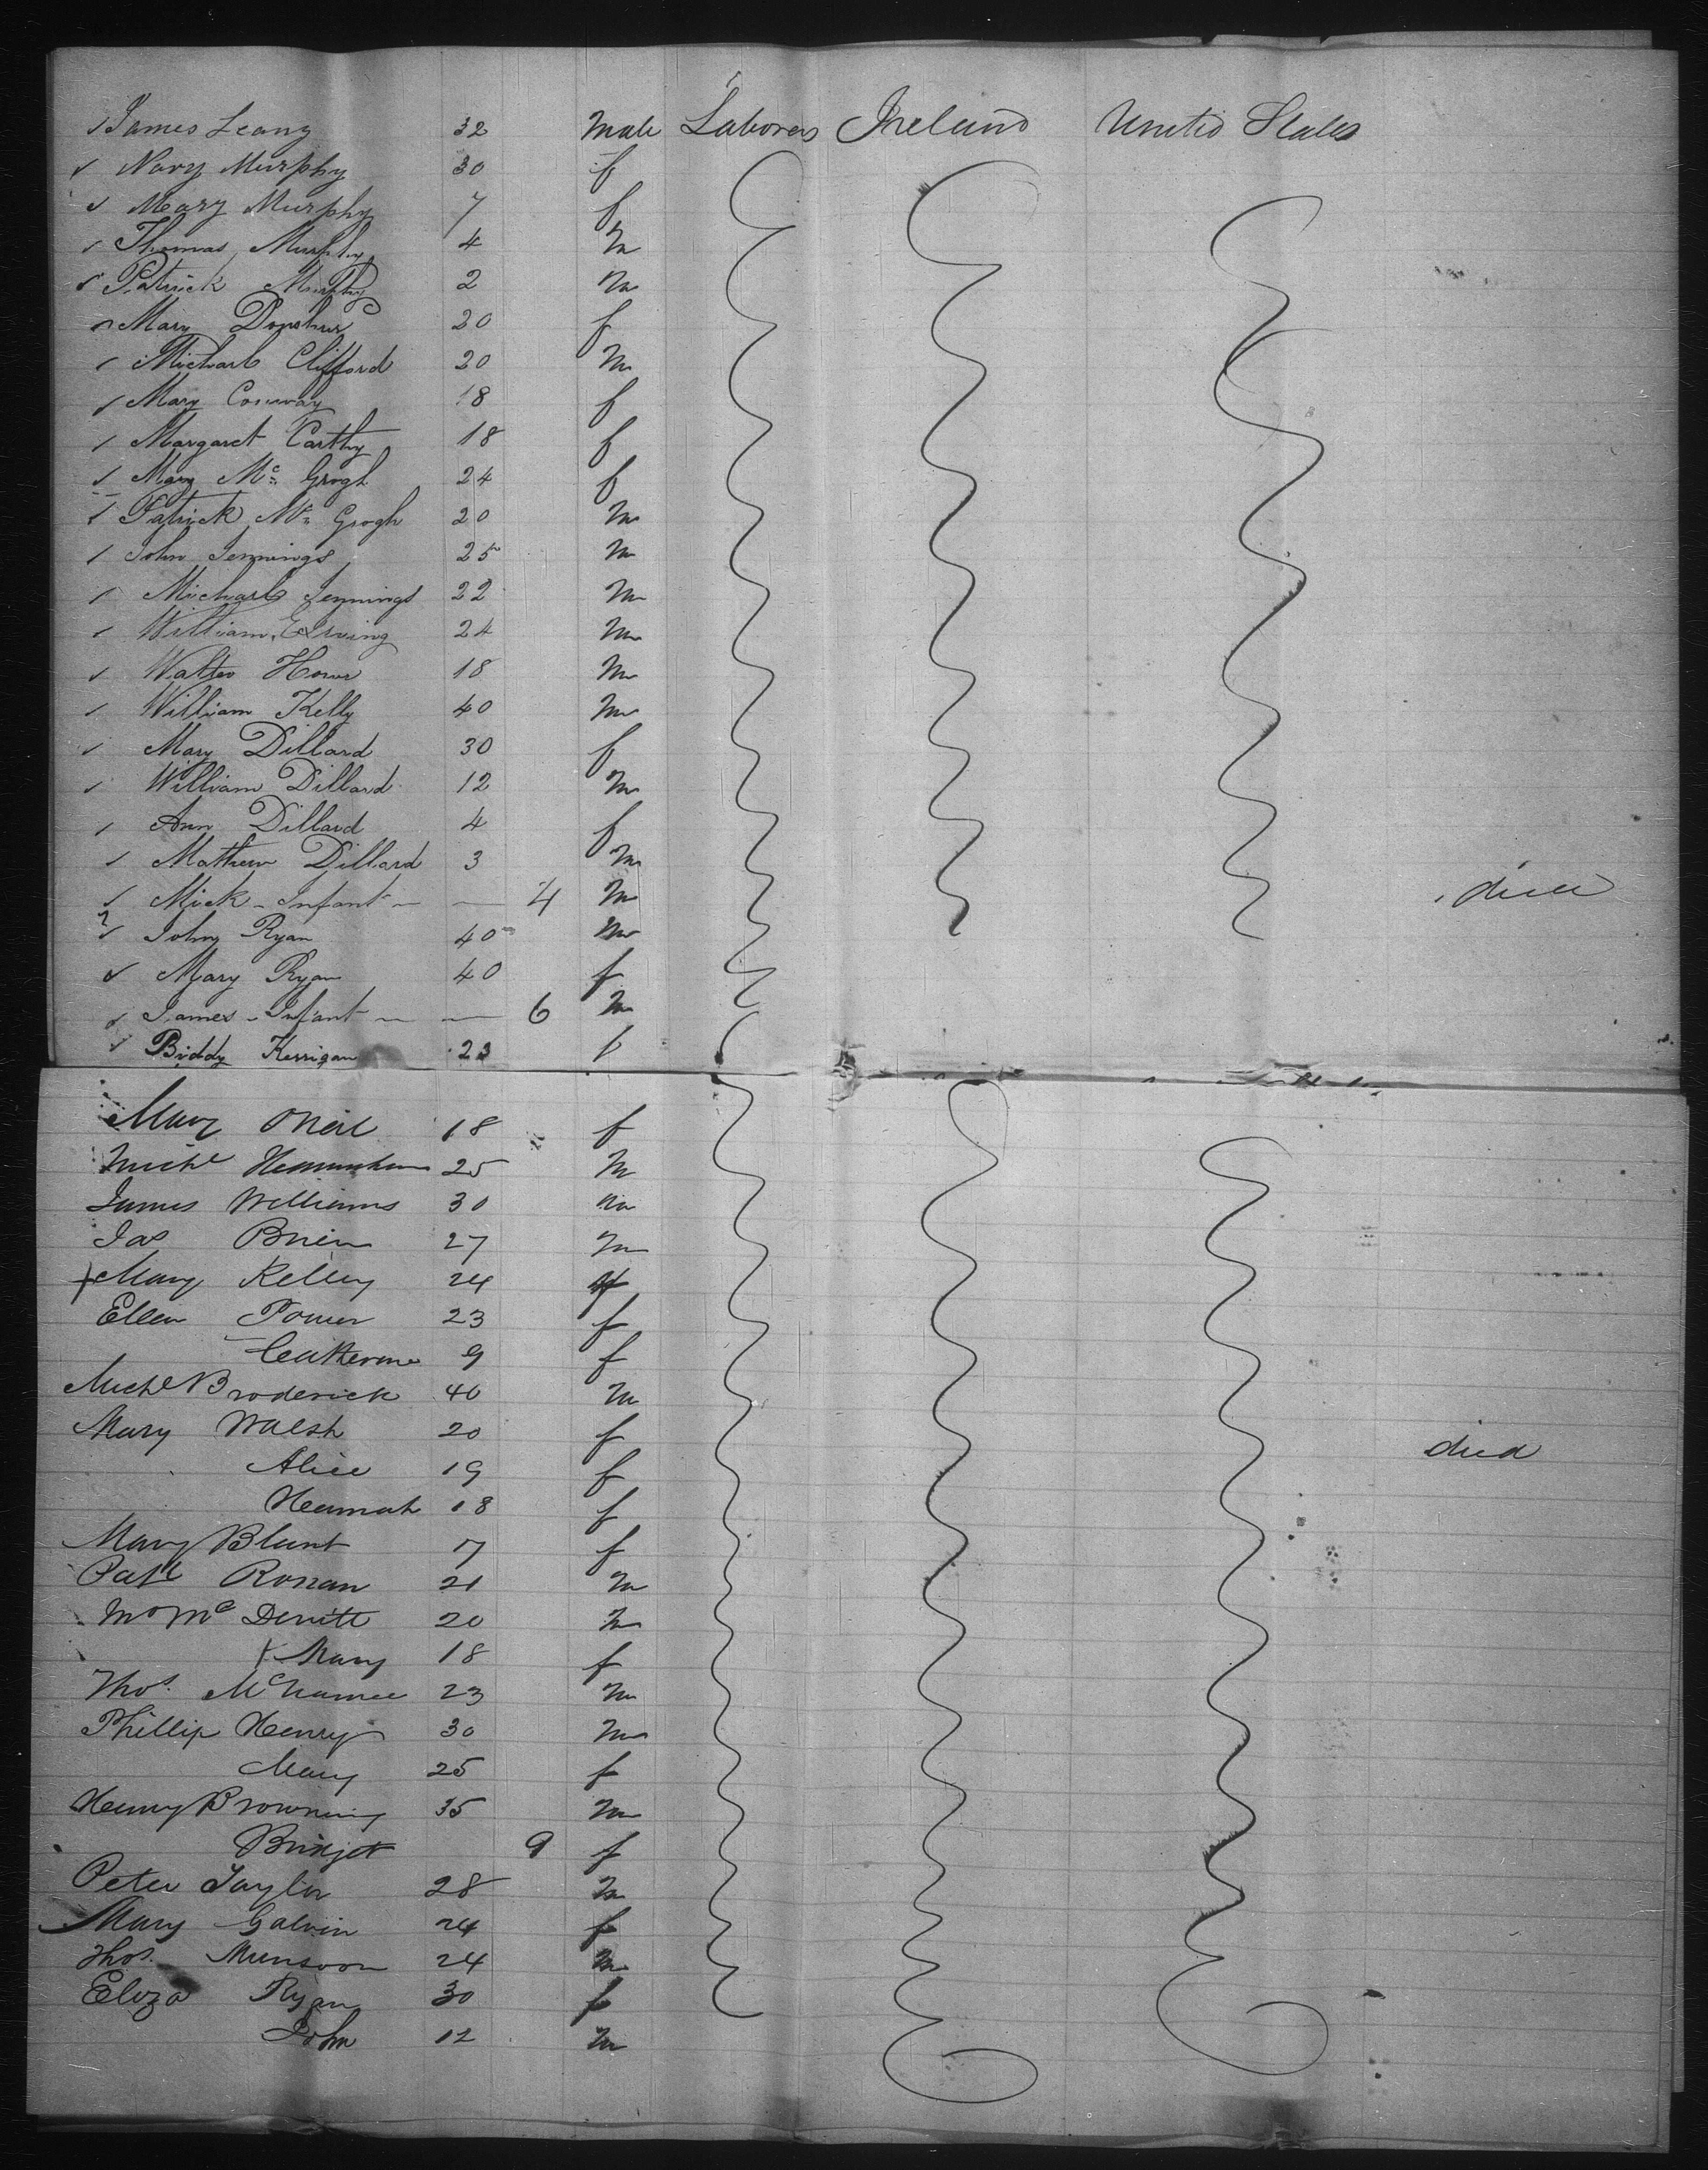 James Leany 32 Male Laborers Ireland United States
Nory Murphy 30 f
Mary Murphy 7 f
Thomas Murphy 4 m
Patrick Murphy 2 m
Mary Donohue 20 f
Michael Clifford 20 m
Mary Conway 18 f
Margaret Carthy 18 f
Mary Mc Grogh 24 f
Patrick Mc Grogh 20 m
John Jennings 25 m
Michael Jennings 22 m
William 24 m
Walter 18 m
William Kelly 40 m
Mary Dillard 30 f
William Dillard 12 m
Ann Dillard 4 f
Mathew Dillard 3 m
Mick - Infant - — 4 m died
John Ryan 40 m
Mary Ryan 40 f
James - Infant — — 6 m
Biddy Kerrigan 23 f
Mary ONeil 18 f
Michl 25 m
James Williams 30 m
Jas Brien 27 m
Mary Kelley 24 f
Ellen Power 23 f
Catherine 9 f
Michl Broderick 40 m
Mary Walsh 20 f died
Alice 19 f
Hannah 18 f
Mary Blunt 7 f
Patk Ronan 21 m
Wm Mc Devitt 20 m
Mary 18 f
Thos. McNamee 23 m
Phillip Henry 30 m
Mary 25 f
Henry Browning 35 m
Bridget 9 f
Peter Taylor 28 m
Mary Galvin 24 f
Thos. Munsoon 24 m
Eliza Ryan 30 f
John 12 m